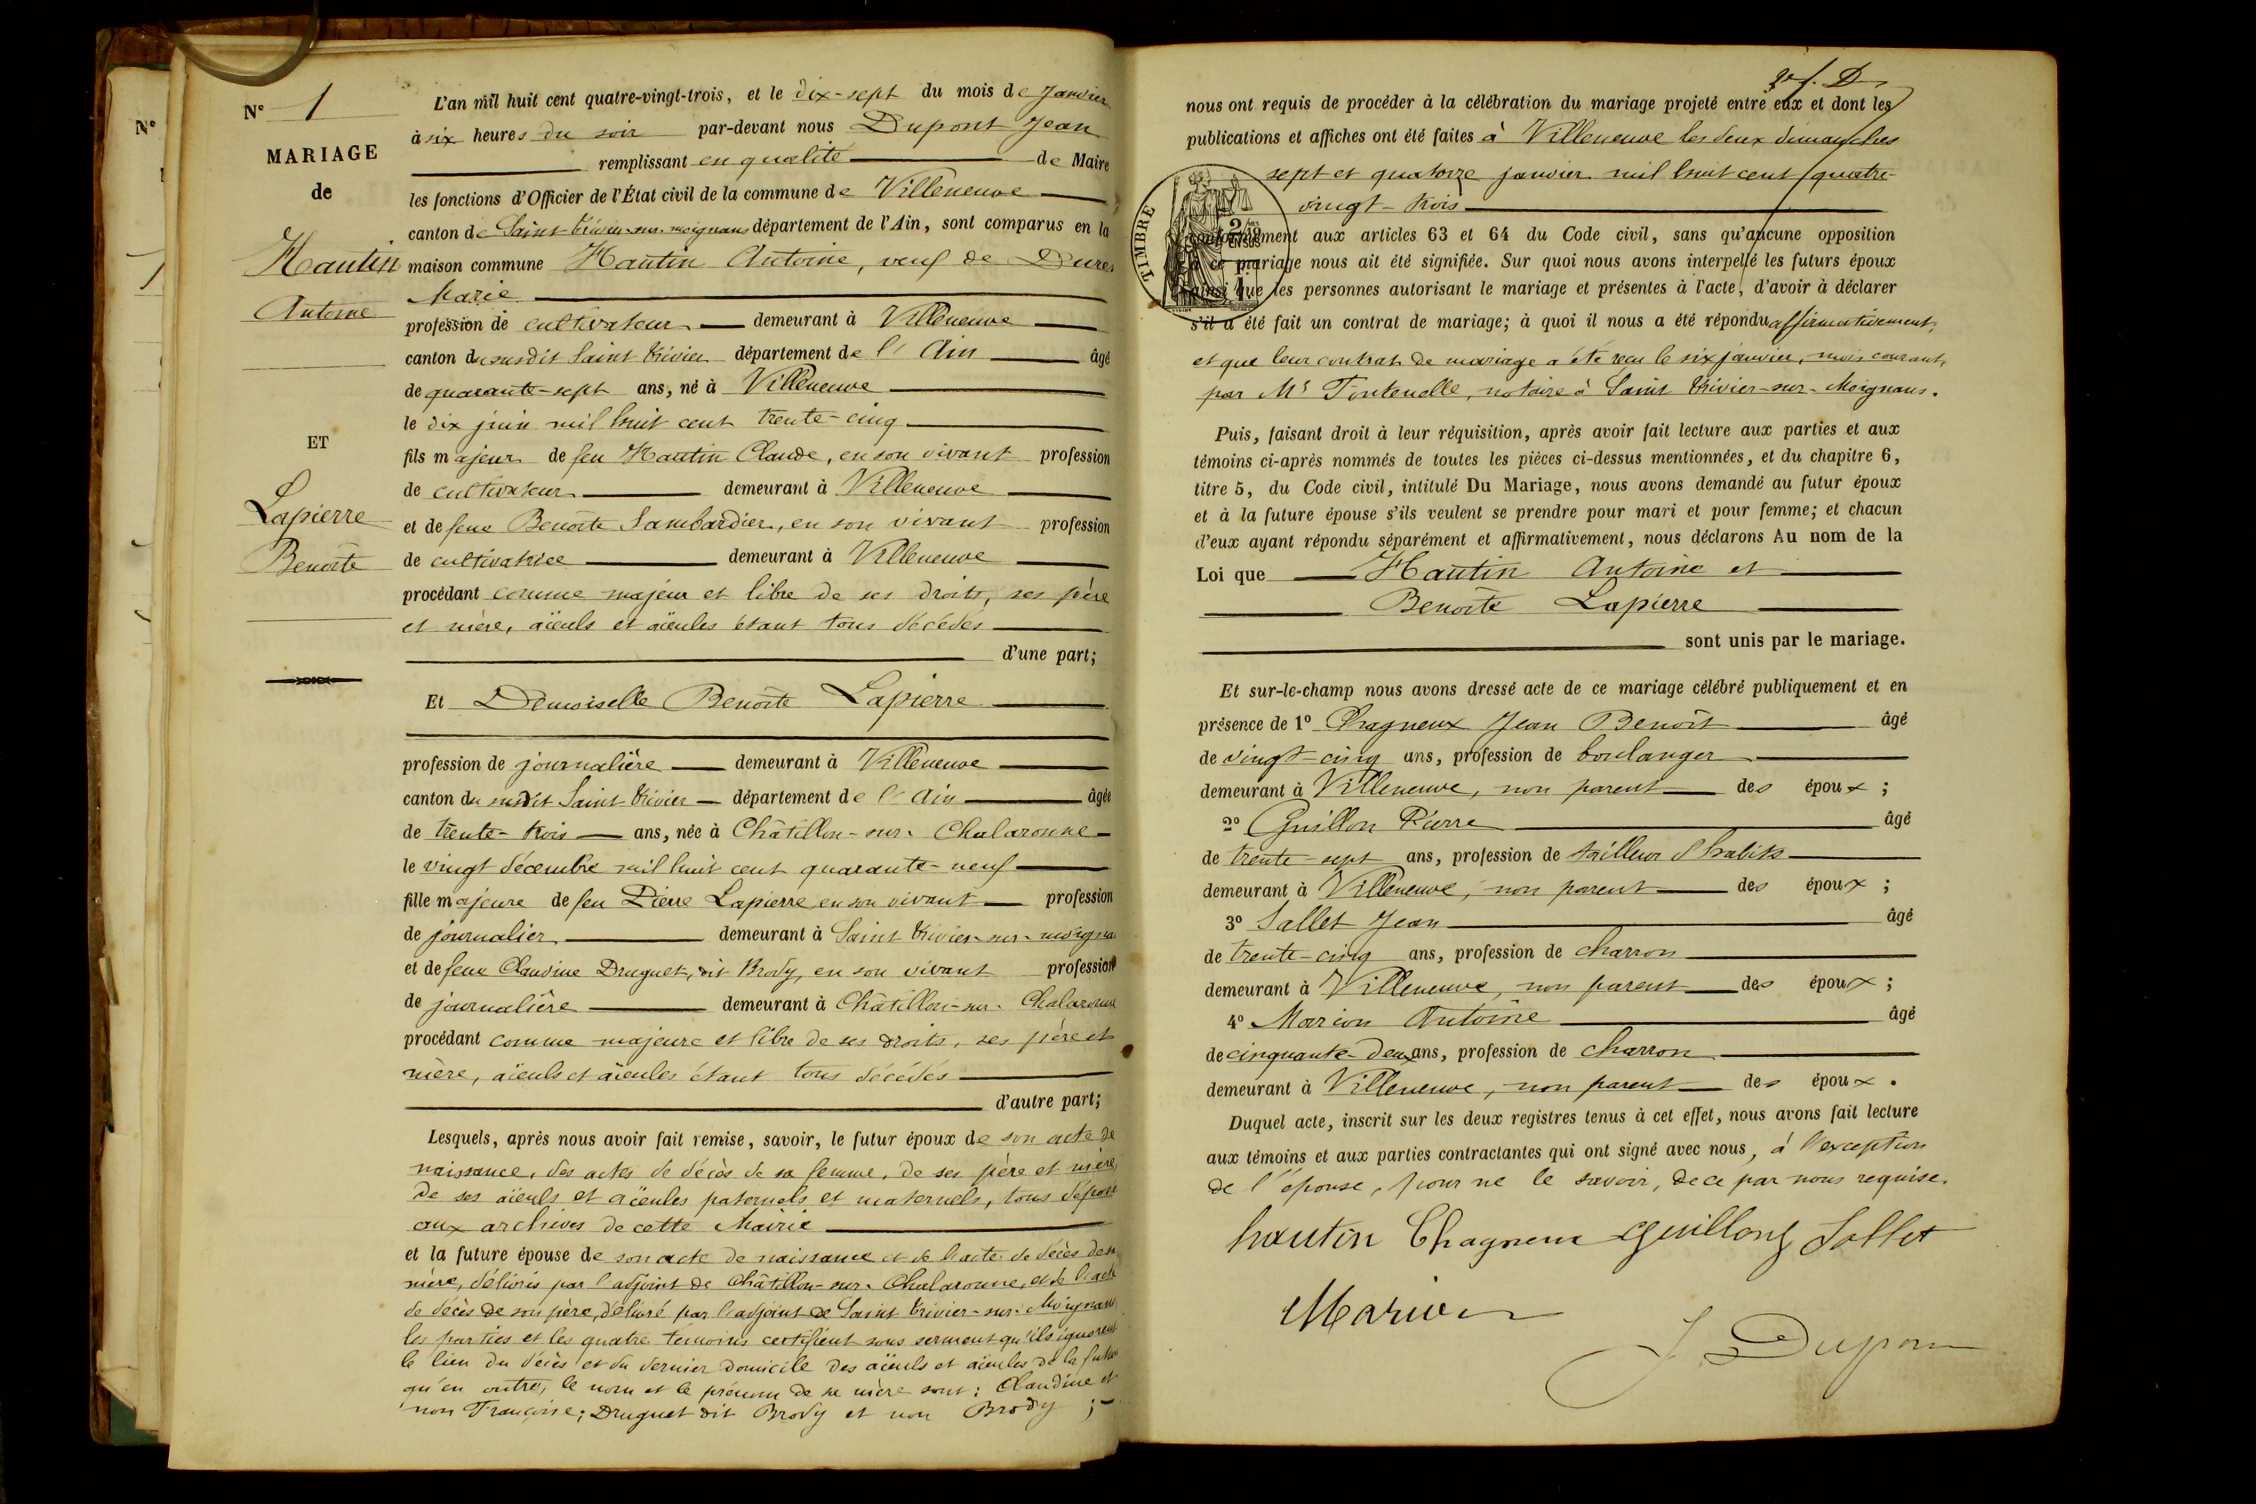 N°
N° 1
MARIAGE
de
Hautin
Antoine
ET
Lapierre
Benoîte
L'an mil huit cent quatre-vingt-trois, et le dix-sept du mois de Janvier
à six heures du soir par-devant nous Dupont Jean
remplissant en qualité de Maire
les fonctions d'Officier de l'État civil de la commune de Villeneuve
canton de Saint-Trivier-sur-moignans département de l'Ain, sont comparus en la
maison commune Hautin Antoine, veuf de
Marie
profession de cultivateur demeurant à Villeneuve
canton du susdit Saint Trivier département de l'Ain âgé
de quarante-sept ans, né à Villeneuve
le dix juin mil huit cent trente-cinq
fils majeur de feu Hautin Claude, en son vivant profession
de cultivateur demeurant à Villeneuve
et de feue Benoîte Sambardier, en son vivant profession
de cultivatrice demeurant à Villeneuve
procédant comme majeur et libre de ses droits, ses père
et mère, aïeuls et aïeules étant tous décédés
d'une part;
Et Demoiselle Benoîte Lapierre
profession de journalière demeurant à Villeneuve
canton du susdit Saint Trivier département de l'Ain âgée
de trente-trois ans, née à Châtillon-sur-Chalaronne
le vingt décembre mil huit cent quarante-neuf
fille majeure de feu Pierre Lapierre en son vivant profession
de journalier demeurant à Saint Trivier-sur-moigna
et de feue Claudine Druguet, dit Brody, en son vivant profession
de journalière demeurant à Châtillon-sur-Chalaronne
procédant comme majeure et libre de ses droits, ses père et
mère, aïeuls et aïeules étant tous décédés
d'autre part;
Lesquels, après nous avoir fait remise, savoir, le futur époux de son acte de
naissance, des actes de décès de sa femme, de ses père et mère,
de ses aïeuls et aïeules paternels et maternels, tous déposés
aux archives de cette Mairie
et la future épouse de son acte de naissance et de l'acte de décès de sa
mère, délivrés par l'adjoint de Châtillon-sur-Chalaronne, et de l'acte
de décès de son père, délivré par l'adjoint de Saint Trivier-sur-Moignans
les parties et les quatre témoins certifient sous serment qu'ils ignorent
le lieu du décès et du dernier domicile des aïeuls et aïeules de la future
qu'en outre, le nom et le prénom de sa mère sont: Claudine et
non Françoise; Druguet dit Brody et non Brody ;
nous ont requis de procéder à la célébration du mariage projeté entre eux et dont les
publications et affiches ont été faites à Villeneuve les deux dimanches
sept et quatorze janvier mil huit cent quatre-
vingt-trois
TIMBRE
conformément aux articles 63 et 64 du Code civil, sans qu'aucune opposition
à ce mariage nous ait été signifiée. Sur quoi nous avons interpellé les futurs époux
ainsi que les personnes autorisant le mariage et présentes à l'acte, d'avoir à déclarer
s'il a été fait un contrat de mariage; à quoi il nous a été répondu affirmativement,
et que leur contrat de mariage a été reçu le six janvier, mois courant,
par Mr Fontenelle, notaire à Saint Trivier-sur-Moignans.
Puis, faisant droit à leur réquisition, après avoir fait lecture aux parties et aux
témoins ci-après nommés de toutes les pièces ci-dessus mentionnées, et du chapitre 6,
titre 5, du Code civil, intitulé Du Mariage, nous avons demandé au futur époux
et à la future épouse s'ils veulent se prendre pour mari et pour femme; et chacun
d'eux ayant répondu séparément et affirmativement, nous déclarons Au nom de la
Loi que Hautin Antoine et
Benoîte Lapierre
sont unis par le mariage.
Et sur-le-champ nous avons dressé acte de ce mariage célébré publiquement et en
présence de 1° Chagneux Jean Benoît âgé
de vingt-cinq ans, profession de boulanger
demeurant à Villeneuve, non parent des époux ;
2° Guillon Pierre âgé
de trente-sept ans, profession de tailleur d'habits
demeurant à Villeneuve, non parent des époux ;
3° Sallet Jean âgé
de trente-cinq ans, profession de charron
demeurant à Villeneuve, non parent des époux ;
4° Marion Antoine âgé
de cinquante-deux ans, profession de charron
demeurant à Villeneuve, non parent des époux .
Duquel acte, inscrit sur les deux registres tenus à cet effet, nous avons fait lecture
aux témoins et aux parties contractantes qui ont signé avec nous, à l'exception
de l'épouse, pour ne le savoir, de ce par nous requise.
hautin Chagneux Guillon Sallet
Marion
J Dupont